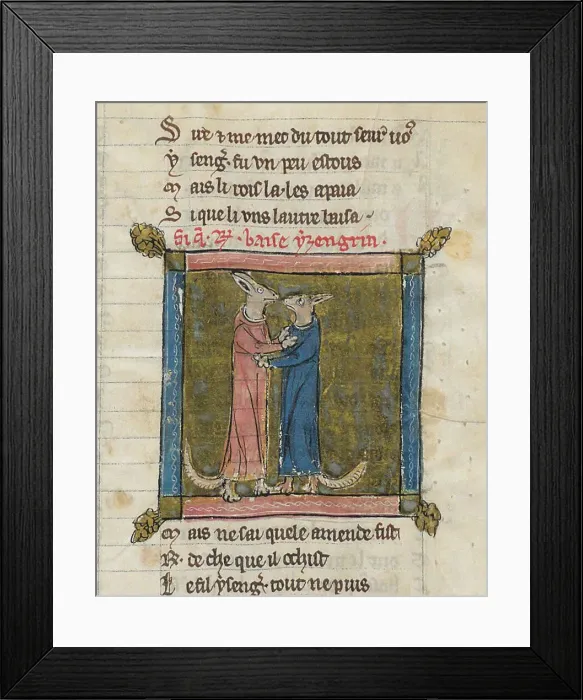 S ire ⁊ me met du tout seur uo⁹
y seng̃. fu vn peu estous
m ais li rois la. les apaia
S i que li vns lautre baisa
baise yzengrin.
m ais ne sai quele amende fist
R. de che que il ochist
L e fil yseng̃. tout ne puis